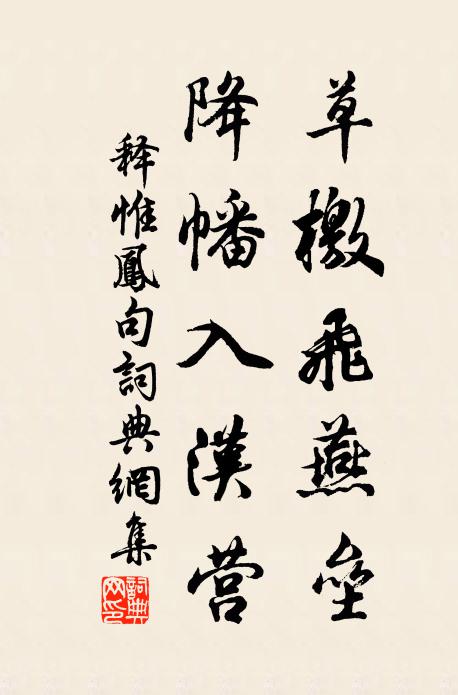 草檄飛燕壘
降幡入漢营
释惟鳳句詞典網集
詞典网印